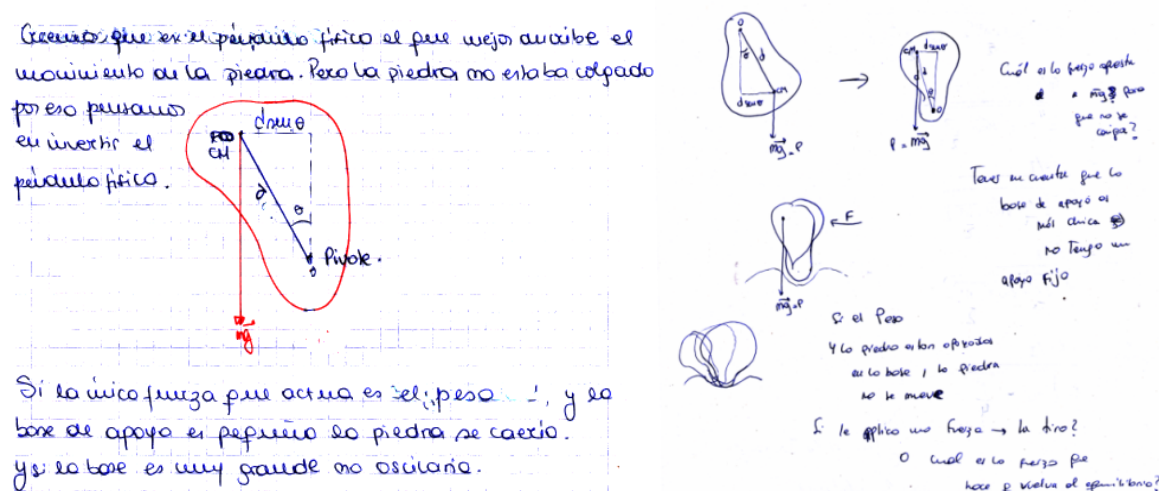 Creemos que es el péndulo físico el que mejor describe el
movimiento de la piedra. Pero la piedra no estaba colgado
por eso pensamos
en invertir el
péndulo físico.
d sen θ
CM
d
θ
Pivote.
o
mg
Si la única fuerza que actua es el peso , y la
base de apoyo es pequeño la piedra se caería.
y si la base es muy grande no oscilaría.
O
θ
d
CM
d sen θ
mg = P
CM
d sen θ
d
θ
O
P = mg
Cuál es la fuerza opuesta
a mg para
que no se
caiga?
Tener en cuenta que la
base de apoyo es
más chica
no Tengo un
apoyo Fijo
F
mg = P
Si el Peso
y la piedra estan apoyados
en la base, la piedra
no se mueve
Si le applico una fuerza → la tiro?
O cual es la fuerza que
hace q vuelva al equilibrio?